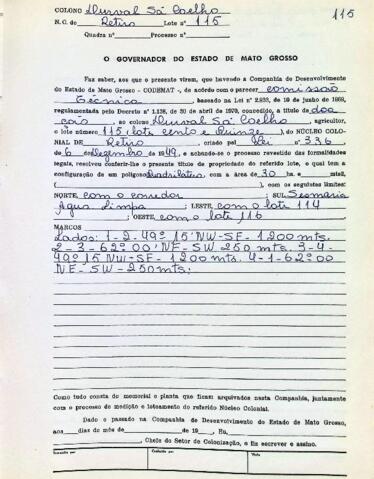 COLONO Durval Sá Coelho 115
N. C. de Retiro Lote nº 115
Quadra nº Processo nº
O GOVERNADOR DO ESTADO DE MATO GROSSO
Faz saber, aos que o presente virem, que havendo a Companhia de Desenvolvimento
do Estado de Mato Grosso - CODEMAT -, de acôrdo com o parecer comissão
Técnica, baseado na Lei nº 2.835, de 19 de junho de 1968,
regulamentada pelo Decreto nº 1.138, de 30 de abril de 1970, concedido, a título de doa
ção, ao colono Durval Sá Coelho, agricultor,
o lote número 115 (lote cento e Quinze), do NÚCLEO COLO-
NIAL DE Retiro, criado pel Lei nº 336
de 6 de Dezembro de 1949, e achando-se o processo revestido das formalidades
legais, resolveu conferir-lhe o presente título de propriedade do referido lote, o qual tem a
configuração de um polígono Quadrilátero, com a área de 30 ha. e mts2,
( ), com os seguintes limites:
NORTE, com o corredor; SUL, Sesmaria
Agua Limpa; LESTE, com o lote 114
; OESTE, com o lote 116
MARCOS
Lados: 1-2-49º15'NW-SE-1200 mts.
2-3-62º00'NE-SW 250 mts. 3-4-
49º15'NW-SE-1200 mts. 4-1-62º00
NE-SW-250mts.
Como tudo consta do memorial e planta que ficam arquivados nesta Companhia, juntamente
com o processo de medição e loteamento do referido Núcleo Colonial.
Dado e passado na Companhia de Desenvolvimento do Estado de Mato Grosso,
aos dias do mês de de 19 , Eu,
, Chefe do Setor de Colonização, o fiz escrever e assino.
Conferido por Visto